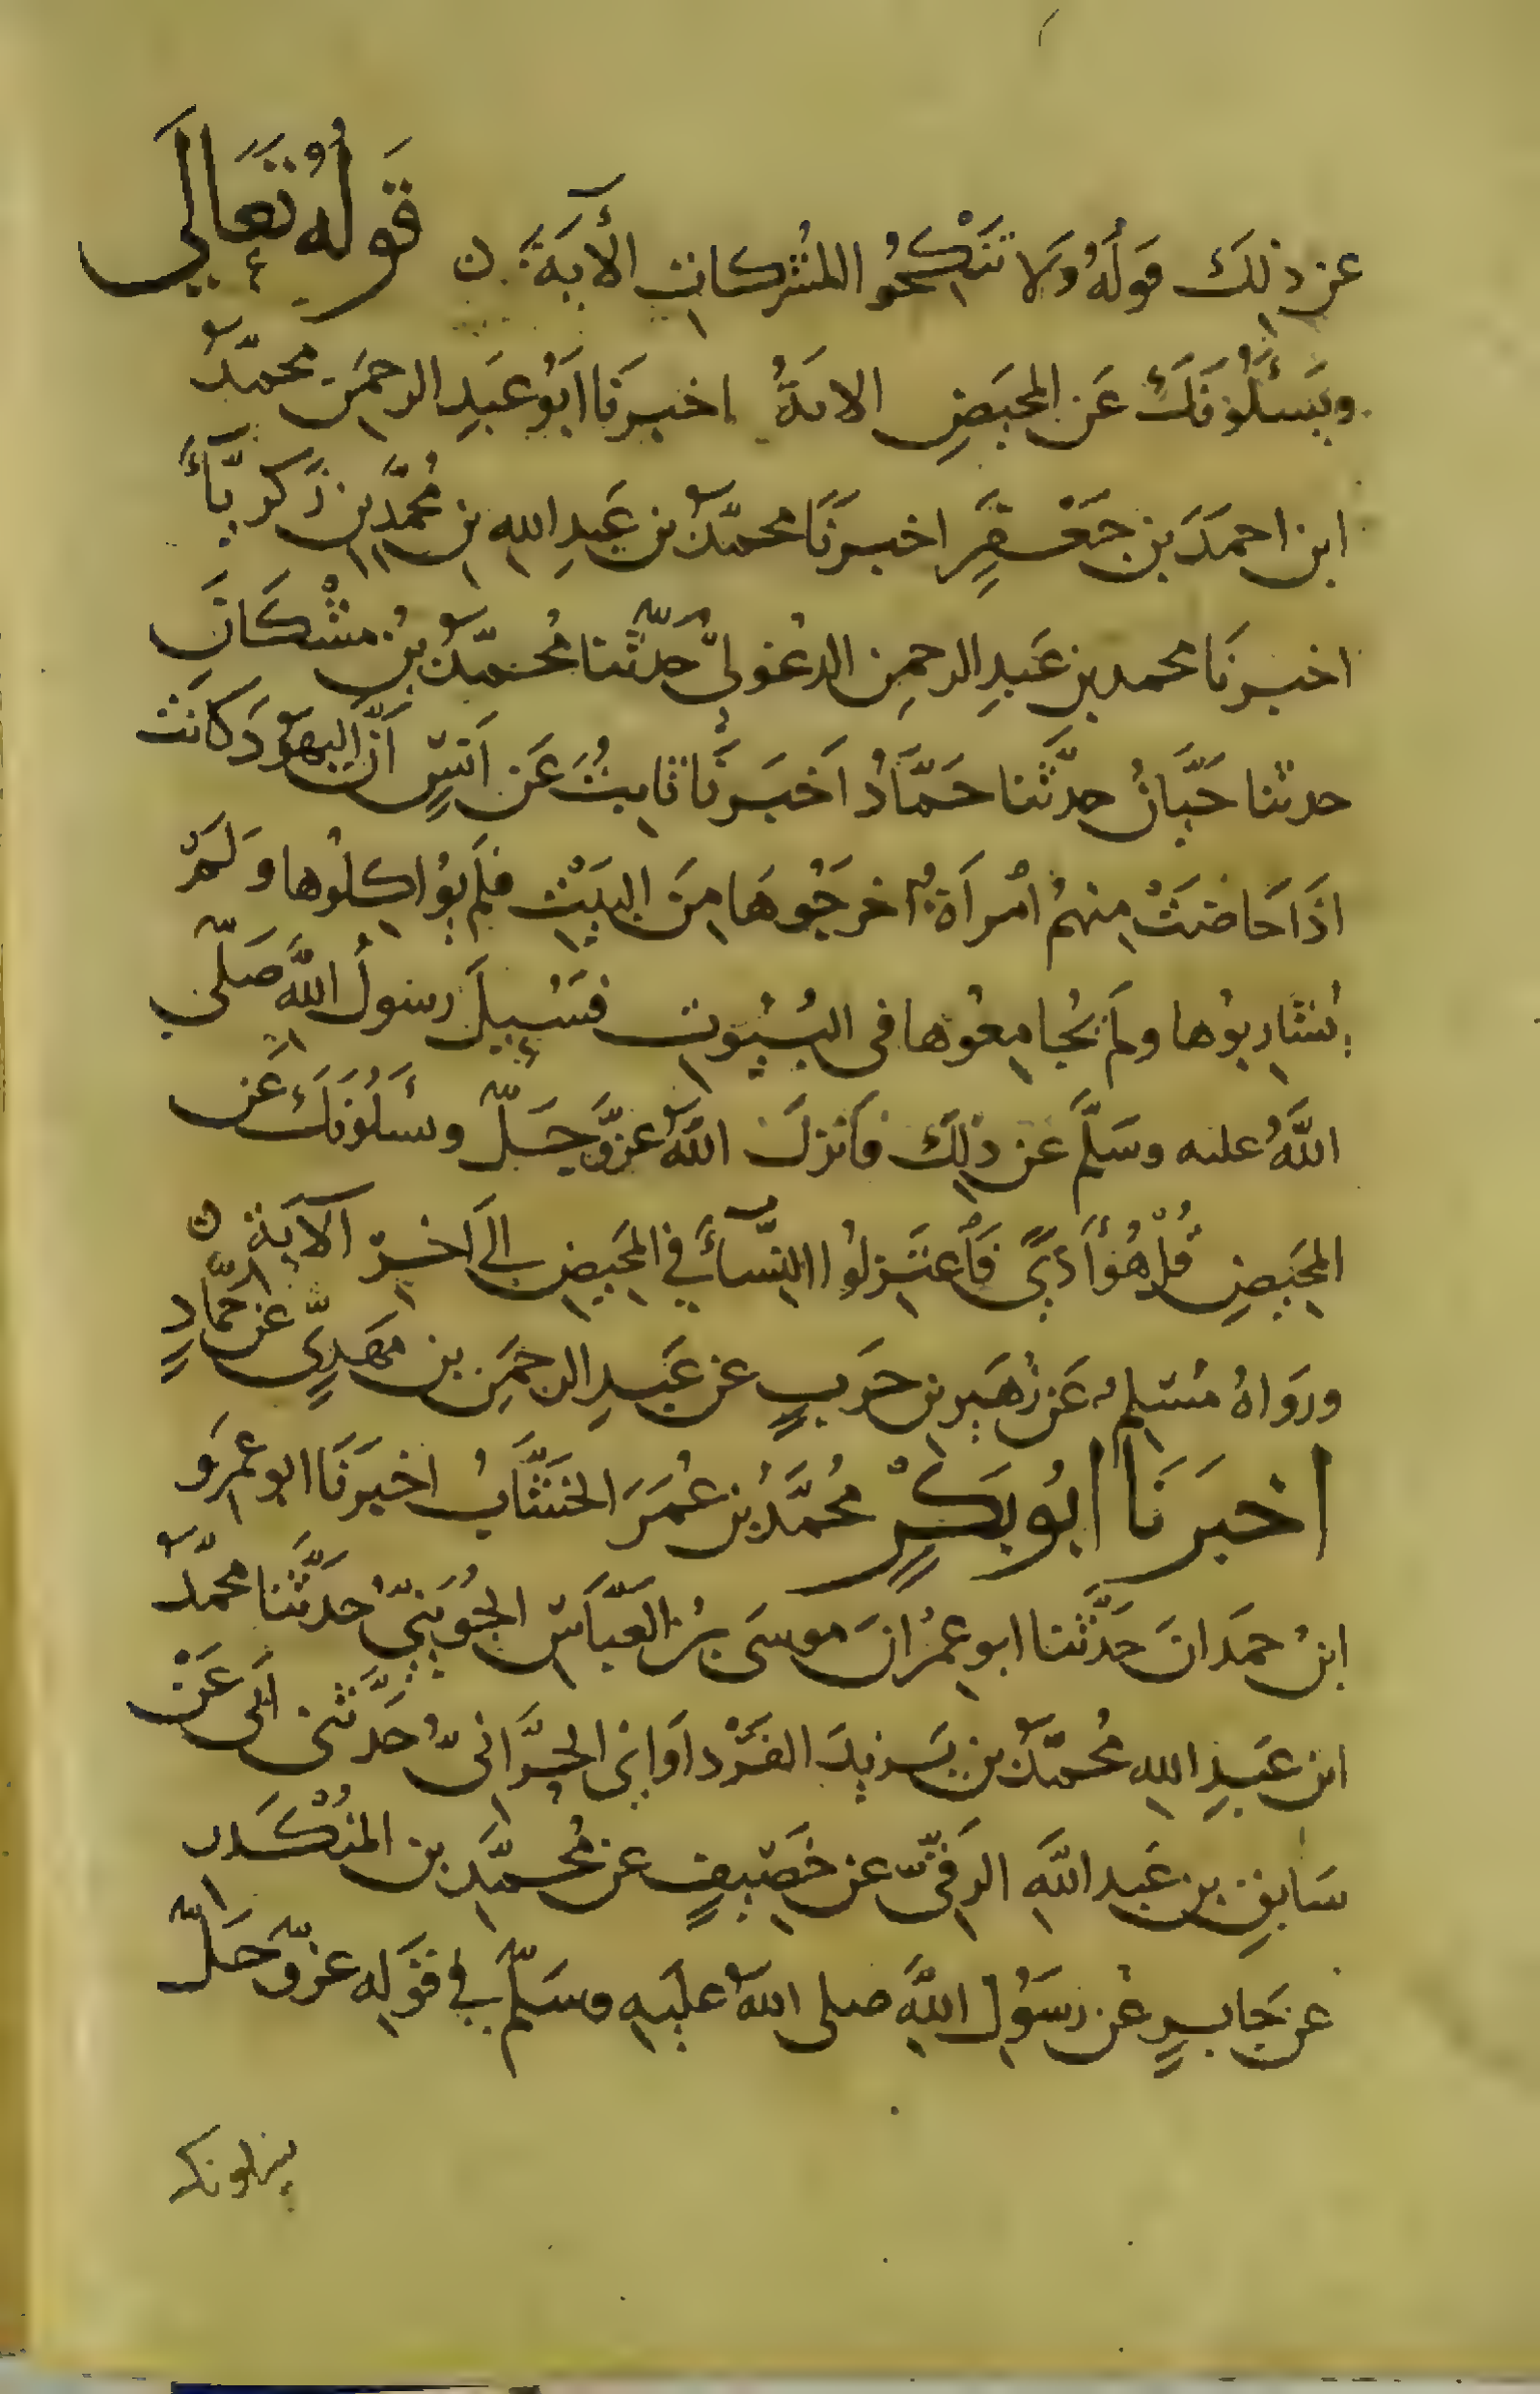 عن ذلِكَ قوله ولا تَنْكِحُوا المُشركاتِ الأيَةَ ن قَولُهُ تَعَالَى
ويَسئَلُونَكَ عَنِ المَحِيضِ الايةُ اخبرَنَا ابُو عَبدِ الرحمَن محمّدُ
ابن احمَدَ بن جَعْفَرٍ اخبرَنَا محمّدُ بن عَبدِ اللهِ بنِ مُحمّدِ بن زَكريّآءَ
اخبرنَا محمد بن عَبدِ الرحمِن الدغوليُّ حدّثنا مُحمّدُ بنُ مشْكَانَ
حدثنا حَبَّانُ حدَّثَنا حَمَّادُ اَخبَرنَا ثَابِتُ عَن اَنَسٍ اَنَّ اليهُودَ كَانَتْ
اذَا حَاضَتْ مِنهُم امْرَاَةٌ اخرجُوهَا مِنَ البَيْتِ فلَم يُوَاكِلُوها ولَمْ
يُشَارِبُوها ولَم يُجَامِعُوها فى البُيُوتِ فَسُئِيلَ رسُولُ اللَّهِ صَلّى
اللَّهُ عليه وسَلَّم عَن ذلِكَ فَاَنْزَلَ اللَّهُ عزَّوجَلّ وسئَلُونَكَ عَنِ
المَحِيضِ قُلْ هُوَ أَذًى فَاعتَزِلُوا النِّسآءَ فِي المَحِيضِ إلى آخِرِ آلايَةِ ن
وروَاهُ مُسْلِمٌ عَن زُهَيرِ بن حَربٍ عن عَبدِ الرحمَنِ بن مَهدِيٍّ عَن حَمّادٍ
اخبرَنَا ابُو بَكْرٍ مُحمَّدُ بن عُمَرَ الخَشَّابُ اخبرَنَا ابو عَمرٍو
ابنُ حمَدانَ حَدَّثنا ابو عِمْرانَ موسَى بنُ العَبَّاسِ الجُوَينِيُّ حَدَّثَنا محمّدُ
ابن عَبدِ اللهِ مُحمّدُ بن يَزيدَ القَرْدَاوَانِى الحَرَّانىُّ حَدَّثنى اَبى عَنْ
سَابقِ بن عَبدِ اللَّهِ الرقّىّ عن خَصِيفٍ عن مُحمّدِ بن المُنْكَدِر
عن جَابِرٍ عَن رسُولِ اللَّهِ صلى اللهُ عليهِ وسَلّم في قَولِهِ عزَّوجَلّ
يسئلونك